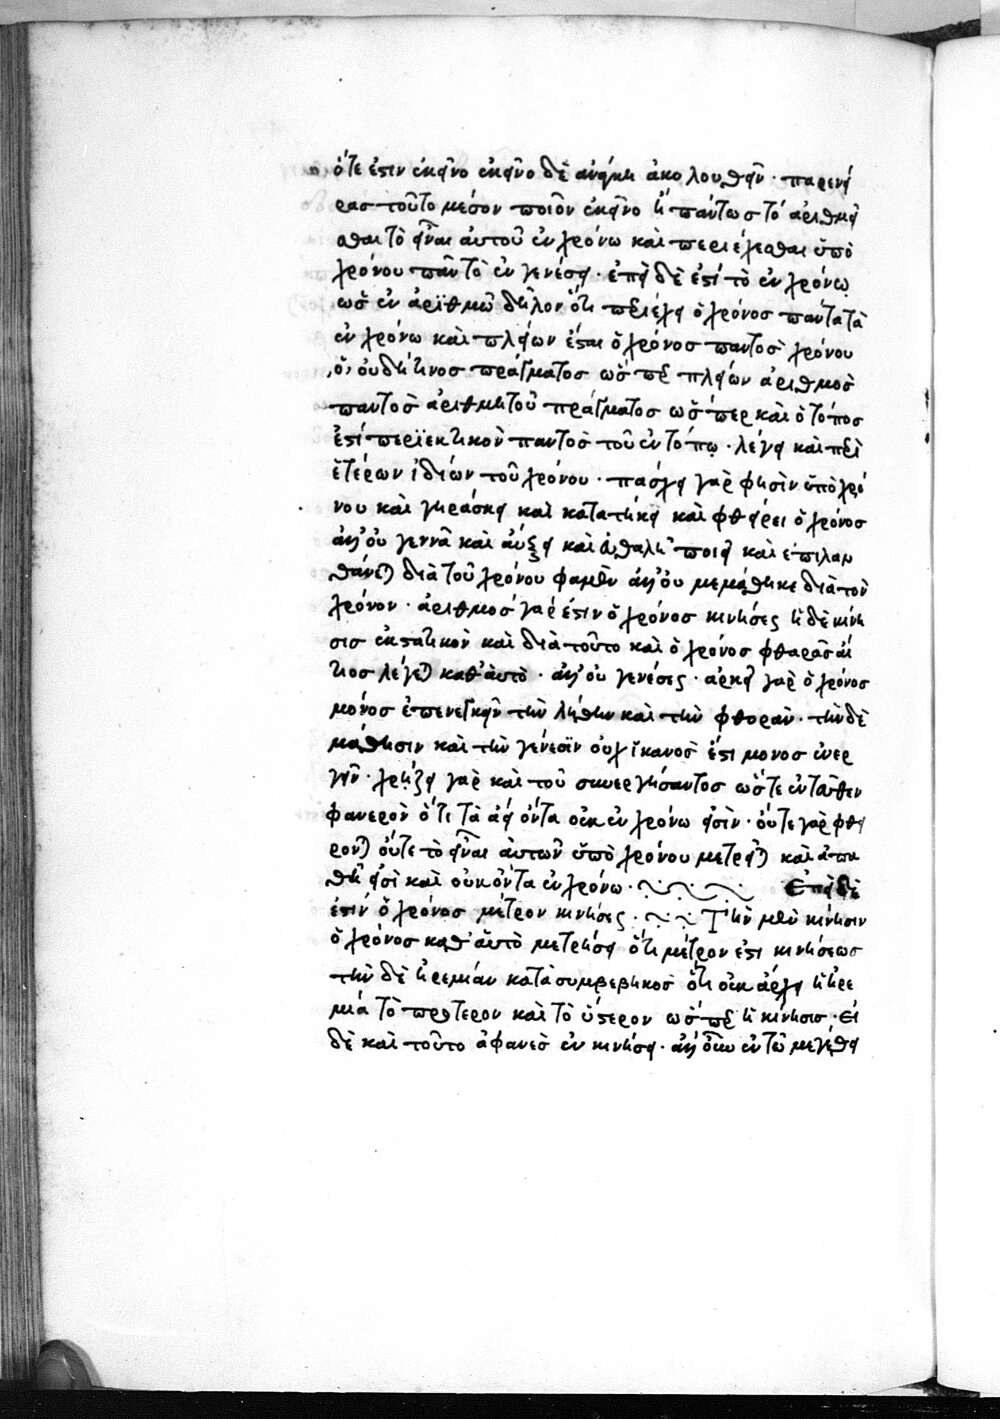 ὅτε ἐστιν ἐκεῖνο ἐκεῖνο δὲ ἀνάγκη ἀκολουθεῖν · παρενεί
ρας τοῦτο μέσον ποιῶν ἐκεῖνο ἢ πάντως τὸ ἀριθμεῖ
σθαι τὸ εἶναι αὐτοῦ ἐν χρόνω καὶ περιέχεσθαι ὑπὸ
χρόνου πᾶν τὸ ἐν γενέσει · ἐπεὶ δὲ ἐστὶ τὸ ἐν χρόνῳ
ὡς ἐν ἀριθμῶ δῆλον ὅτι περιέχει ὁ χρόνος πάντα τὰ
ἐν χρόνω καὶ πλείων ἔσται ὁ χρόνος παντὸς χρόνου
οὑδήτινος πράγματος ὥσπερ πλείων ἀριθμὸς
παντὸς ἀριθμητοῦ πράγματος ὥσπερ καὶ ὁ τόπος
ἐστὶ περιεκτικὸν παντὸς τοῦ ἐν τόπῳ · λέγει καὶ περὶ
ἑτέρων ἰδίων τοῦ χρόνου · πάσχει γὰρ φησὶν ὑπὸ χρό
νου καὶ γηράσκει καὶ κατατήκει καὶ φθείρει ὁ χρόνος
ἀλλ' οὐ γεννᾶ καὶ αὔξει καὶ ἀθαλῆ ποιεῖ καὶ ἐπιλαν
θάνεται διὰ τοῦ χρόνου φαμὲν ἀλλ' οὐ μεμάθηκε διὰ τὸν
χρόνον · ἀριθμὸς γάρ ἐστιν ὁ χρόνος κινήσεως ἡ δὲ κίνη
σις ἐκστατικὸν καὶ διὰ τοῦτο καὶ ὁ χρόνος φθορᾶς αἴ
τιος λέγεται καθ' αὑτὸ · ἀλλ' οὐ γενέσεως · ἀρκεῖ γὰρ ὁ χρόνος
μόνος ἐπενεγκεῖν τὴν λήθην καὶ τὴν φθορὰν · τὴν δὲ
μάθησιν καὶ τὴν γένεσιν οὐχ ἱκανὸς ἐστι μονος ἐνερ
γεῖν · χρήζει γὰρ καὶ τοῦ συνεργήσαντος ὥστε ἐνταῦθεν
φανερὸν ὅτι τὰ ἀεὶ ὄντα οὐκ ἐν χρόνω εἰσὶν · οὔτε γὰρ φθεί
ρονται οὔτε τὸ εἶναι αὐτῶν ὑπὸ χρόνου μετρεῖται καὶ ἀπα
θῆ εἰσὶ καὶ οὐκ ὄντα ἐν χρόνω · Ἐπεὶ δὲ
ἐστὶν ὁ χρόνος μέτρον κινήσεως · Τὴν μὲν κίνησιν
ὁ χρόνος καθ' αὑτὸ μετρήσει ὅτι μέτρον ἐστι κινήσεως
τὴν δὲ ἠρεμίαν κατὰ συμβεβηκὸς ὅτι οὐκ ἄρχει ἡ ἠρε
μία τὸ πρότερον καὶ τὸ ὕστερον ὥσπερ ἡ κίνησις · Εἰ
δὲ καὶ τοῦτο ἀφανὲς ἐν κινήσει · ἀλλ' οὖν ἐν τῶ μεγέθει